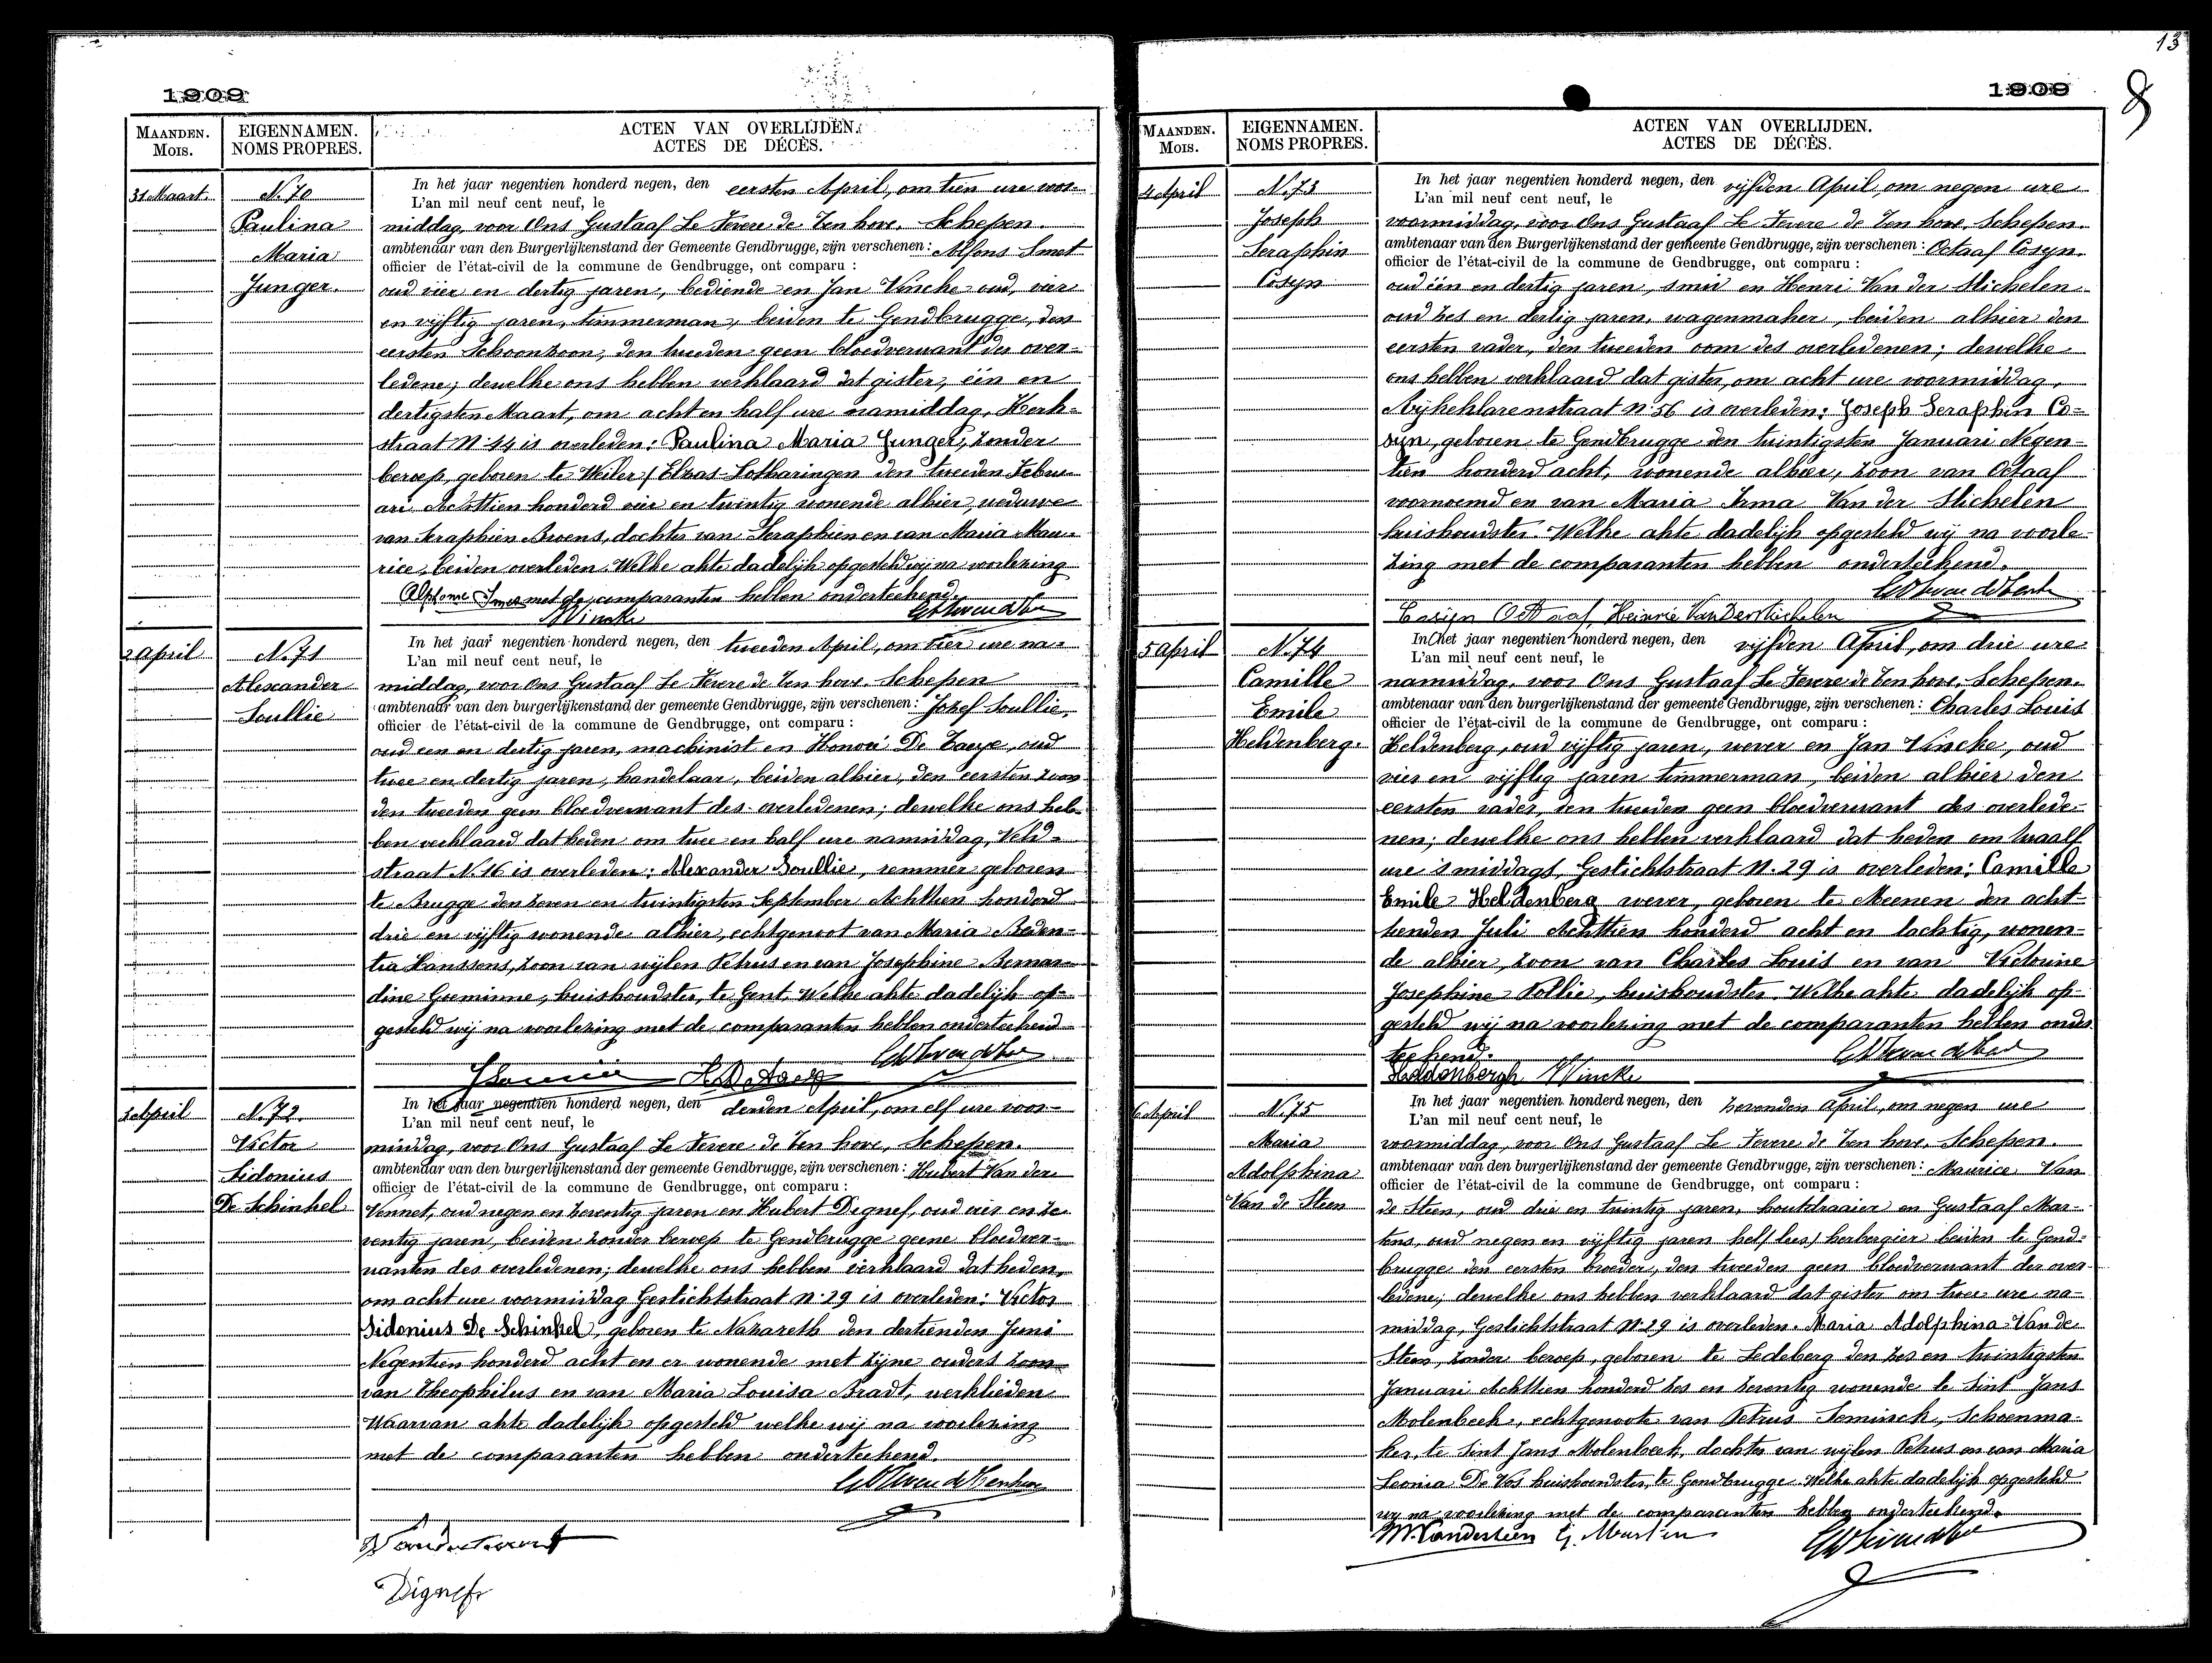 1909
MAANDEN.
MOIS.
EIGENNAMEN.
NOMS PROPRES.
ACTEN VAN OVERLIJDEN.
ACTES DE DÉCÈS.
31 Maart.
N. 70
Paulina
Maria
Junger.
In het jaar negentien honderd negen, den eersten April, om tien ure voor-
L'an mil neuf cent neuf, le
middag, voor Ons Gustaaf Le Fevere de Ten hove, Schepen.
ambtenaar van den Burgerlijkenstand der Gemeente Gendbrugge, zijn verschenen: Alfons Smet
officier de l'état-civil de la commune de Gendbrugge, ont comparu :
oud vier en dertig jaren, bediende en Jan Vincke oud, vier
en vijftig jaren, timmerman, beiden te Gendbrugge, den
eersten schoonzoon, den tweeden geen bloedverwant der over-
ledene; dewelke ons hebben verklaard dat gister, één en
dertigsten Maart, om acht en half ure namiddag, Kerk-
straat N. 44 is overleden: Paulina Maria Junger, zonder
beroep, geboren te Weiler / Elzas-Lotharingen den tweeden Febru-
ari Achttien honderd vier en twintig wonende alhier, weduwe
van Seraphien Awens, dochter van Seraphien en van Maria Mau-
rice, beiden overleden. Welke akte dadelijk opgesteld wij na voorlezing
Alphonse Smet met de comparanten hebben onderteekend.
JVincke
2 April
N. 71
Alexander
Soullie
In het jaar negentien honderd negen, den tweeden April, om vier ure na-
L'an mil neuf cent neuf, le
middag, voor Ons Gustaaf Le Fevere de Ten hove, Schepen
ambtenaar van den burgerlijkenstand der gemeente Gendbrugge, zijn verschenen: Jozef Soullie,
officier de l'état-civil de la commune de Gendbrugge, ont comparu :
oud een en dertig jaren, machinist en Honoré De Taeye, oud
twee en dertig jaren, handelaar, beiden alhier, den eersten zoon
den tweeden geen bloedverwant des overledenen; dewelke ons heb-
ben verklaard dat heden om twee en half ure namiddag, Veld-
straat N. 16 is overleden: Alexander Soullie, remmer geboren
te Brugge den zeven en twintigsten September Achttien honderd
drie en vijftig wonende alhier, echtgenoot van Maria Beden-
tia Hanssens, zoon van wijlen Petrus en van Josephine Bernar-
dine Goeminne, huishoudster, te Gent. Welke akte dadelijk op-
gesteld wij na voorlezing met de comparanten hebben onderteekend
3 April
N. 72.
Victor
Sidonius
De Schinkel
In het jaar negentien honderd negen, den derden April, om elf ure voor-
L'an mil neuf cent neuf, le
middag, voor Ons Gustaaf Le Fevere de Ten hove, Schepen.
ambtenaar van den burgerlijkenstand der gemeente Gendbrugge, zijn verschenen: Hubert Van der
officier de l'état-civil de la commune de Gendbrugge, ont comparu :
Vennet, oud negen en zeventig jaren en Hubert Dignef, oud vier en ze-
ventig jaren, beiden zonder beroep te Gendbrugge geene bloedver-
wanten des overledenen; dewelke ons hebben verklaard dat heden,
om acht ure voormiddag Gestichtstraat N. 29 is overleden: Victor
Sidonius De Schinkel, geboren te Nazareth den dertienden Juni
Negentien honderd acht en er wonende met zijne ouders zoon
van Theophilus en van Maria Louisa Bradt, werklieden
Waarvan akte dadelijk opgesteld welke wij na voorlezing
met de comparanten hebben onderteekend.
Dignef
13
1909
8
MAANDEN.
MOIS.
EIGENNAMEN.
NOMS PROPRES.
ACTEN VAN OVERLIJDEN.
ACTES DE DÉCÈS.
4 April
N. 73
Joseph
Seraphin
Cosyn
In het jaar negentien honderd negen, den vijfden April, om negen ure
L'an mil neuf cent neuf, le
voormiddag, voor Ons Gustaaf Le Fevere de Ten hove, Schepen.
ambtenaar van den Burgerlijkenstand der gemeente Gendbrugge, zijn verschenen: Octaaf Cosyn.
officier de l'état-civil de la commune de Gendbrugge, ont comparu :
oud één en dertig jaren, smid en Henri Van der Stichelen
oud zes en dertig jaren, wagenmaker, beiden alhier den
eersten vader, den tweeden oom des overledenen; dewelke
ons hebben verklaard dat gister, om acht ure voormiddag,
Nijkeklarenstraat N. 56 is overleden: Joseph Seraphin Co-
syn, geboren te Gendbrugge den twintigsten Januari Negen-
tien honderd acht, wonende alhier, zoon van Octaaf
voornoemd en van Maria Irma Van der Stichelen
huishoudster. Welke akte dadelijk opgesteld wij na voorle-
zing met de comparanten hebben onderteekend.
Cosijn Octaaf, Heinrie VanDerStichelen
5 April
N. 74
Camille
Emile
Heldenberg.
In het jaar negentien honderd negen, den vijfden April, om drie ure
L'an mil neuf cent neuf, le
namiddag, voor Ons Gustaaf Le Fevere de Ten hove, Schepen.
ambtenaar van den burgerlijkenstand der gemeente Gendbrugge, zijn verschenen: Charles Louis
officier de l'état-civil de la commune de Gendbrugge, ont comparu :
Heldenberg, oud vijftig jaren, wever en Jan Vincke, oud
vier en vijftig jaren timmerman, beiden alhier den
eersten vader, den tweeden geen bloedverwant des overlede-
nen; dewelke ons hebben verklaard dat heden om twaalf
ure 's middags, Gestichtstraat N. 29 is overleden: Camille
Emile Heldenberg wever, geboren te Meenen den acht-
tienden Juli Achttien honderd acht en tachtig, wonen-
de alhier, zoon van Charles Louis en van Victorine
Josephine Pollie, huishoudster. Welke akte dadelijk op-
gesteld wij na voorlezing met de comparanten hebben onder
teekend.
Heldenbergh JVincke
6 April
N. 75
Maria
Adolphina
Van de Steen
In het jaar negentien honderd negen, den zevenden april, om negen ure
L'an mil neuf cent neuf, le
voormiddag, voor Ons Gustaaf Le Fevere de Ten hove, Schepen.
ambtenaar van den burgerlijkenstand der gemeente Gendbrugge, zijn verschenen: Maurice Van
officier de l'état-civil de la commune de Gendbrugge, ont comparu :
de Steen, oud drie en twintig jaren, houtdraaier en Gustaaf Mar-
tens, oud negen en vijftig jaren hel/lees/ herbergier beiden te Gend-
brugge den eersten broeder, den tweeden geen bloedverwant der over-
ledene; dewelke ons hebben verklaard dat gister om twee ure na-
middag, Gestichtstraat N. 29 is overleden. Maria Adolphina Van de
Steen, zonder beroep, geboren te Ledeberg den zes en twintigsten
Januari Achttien honderd zes en zeventig wonende te Sint Jans
Molenbeek, echtgenoote van Petrus Seminck, Schoenma-
ker, te Sint Jans Molenbeek, dochter van wijlen Petrus en van Maria
Leonia De Vos huishoudster, te Gendbrugge. Welke akte dadelijk opgesteld
wij na voorlezing met de comparanten hebben onderteekend.
M. Vandesteen G. Martin